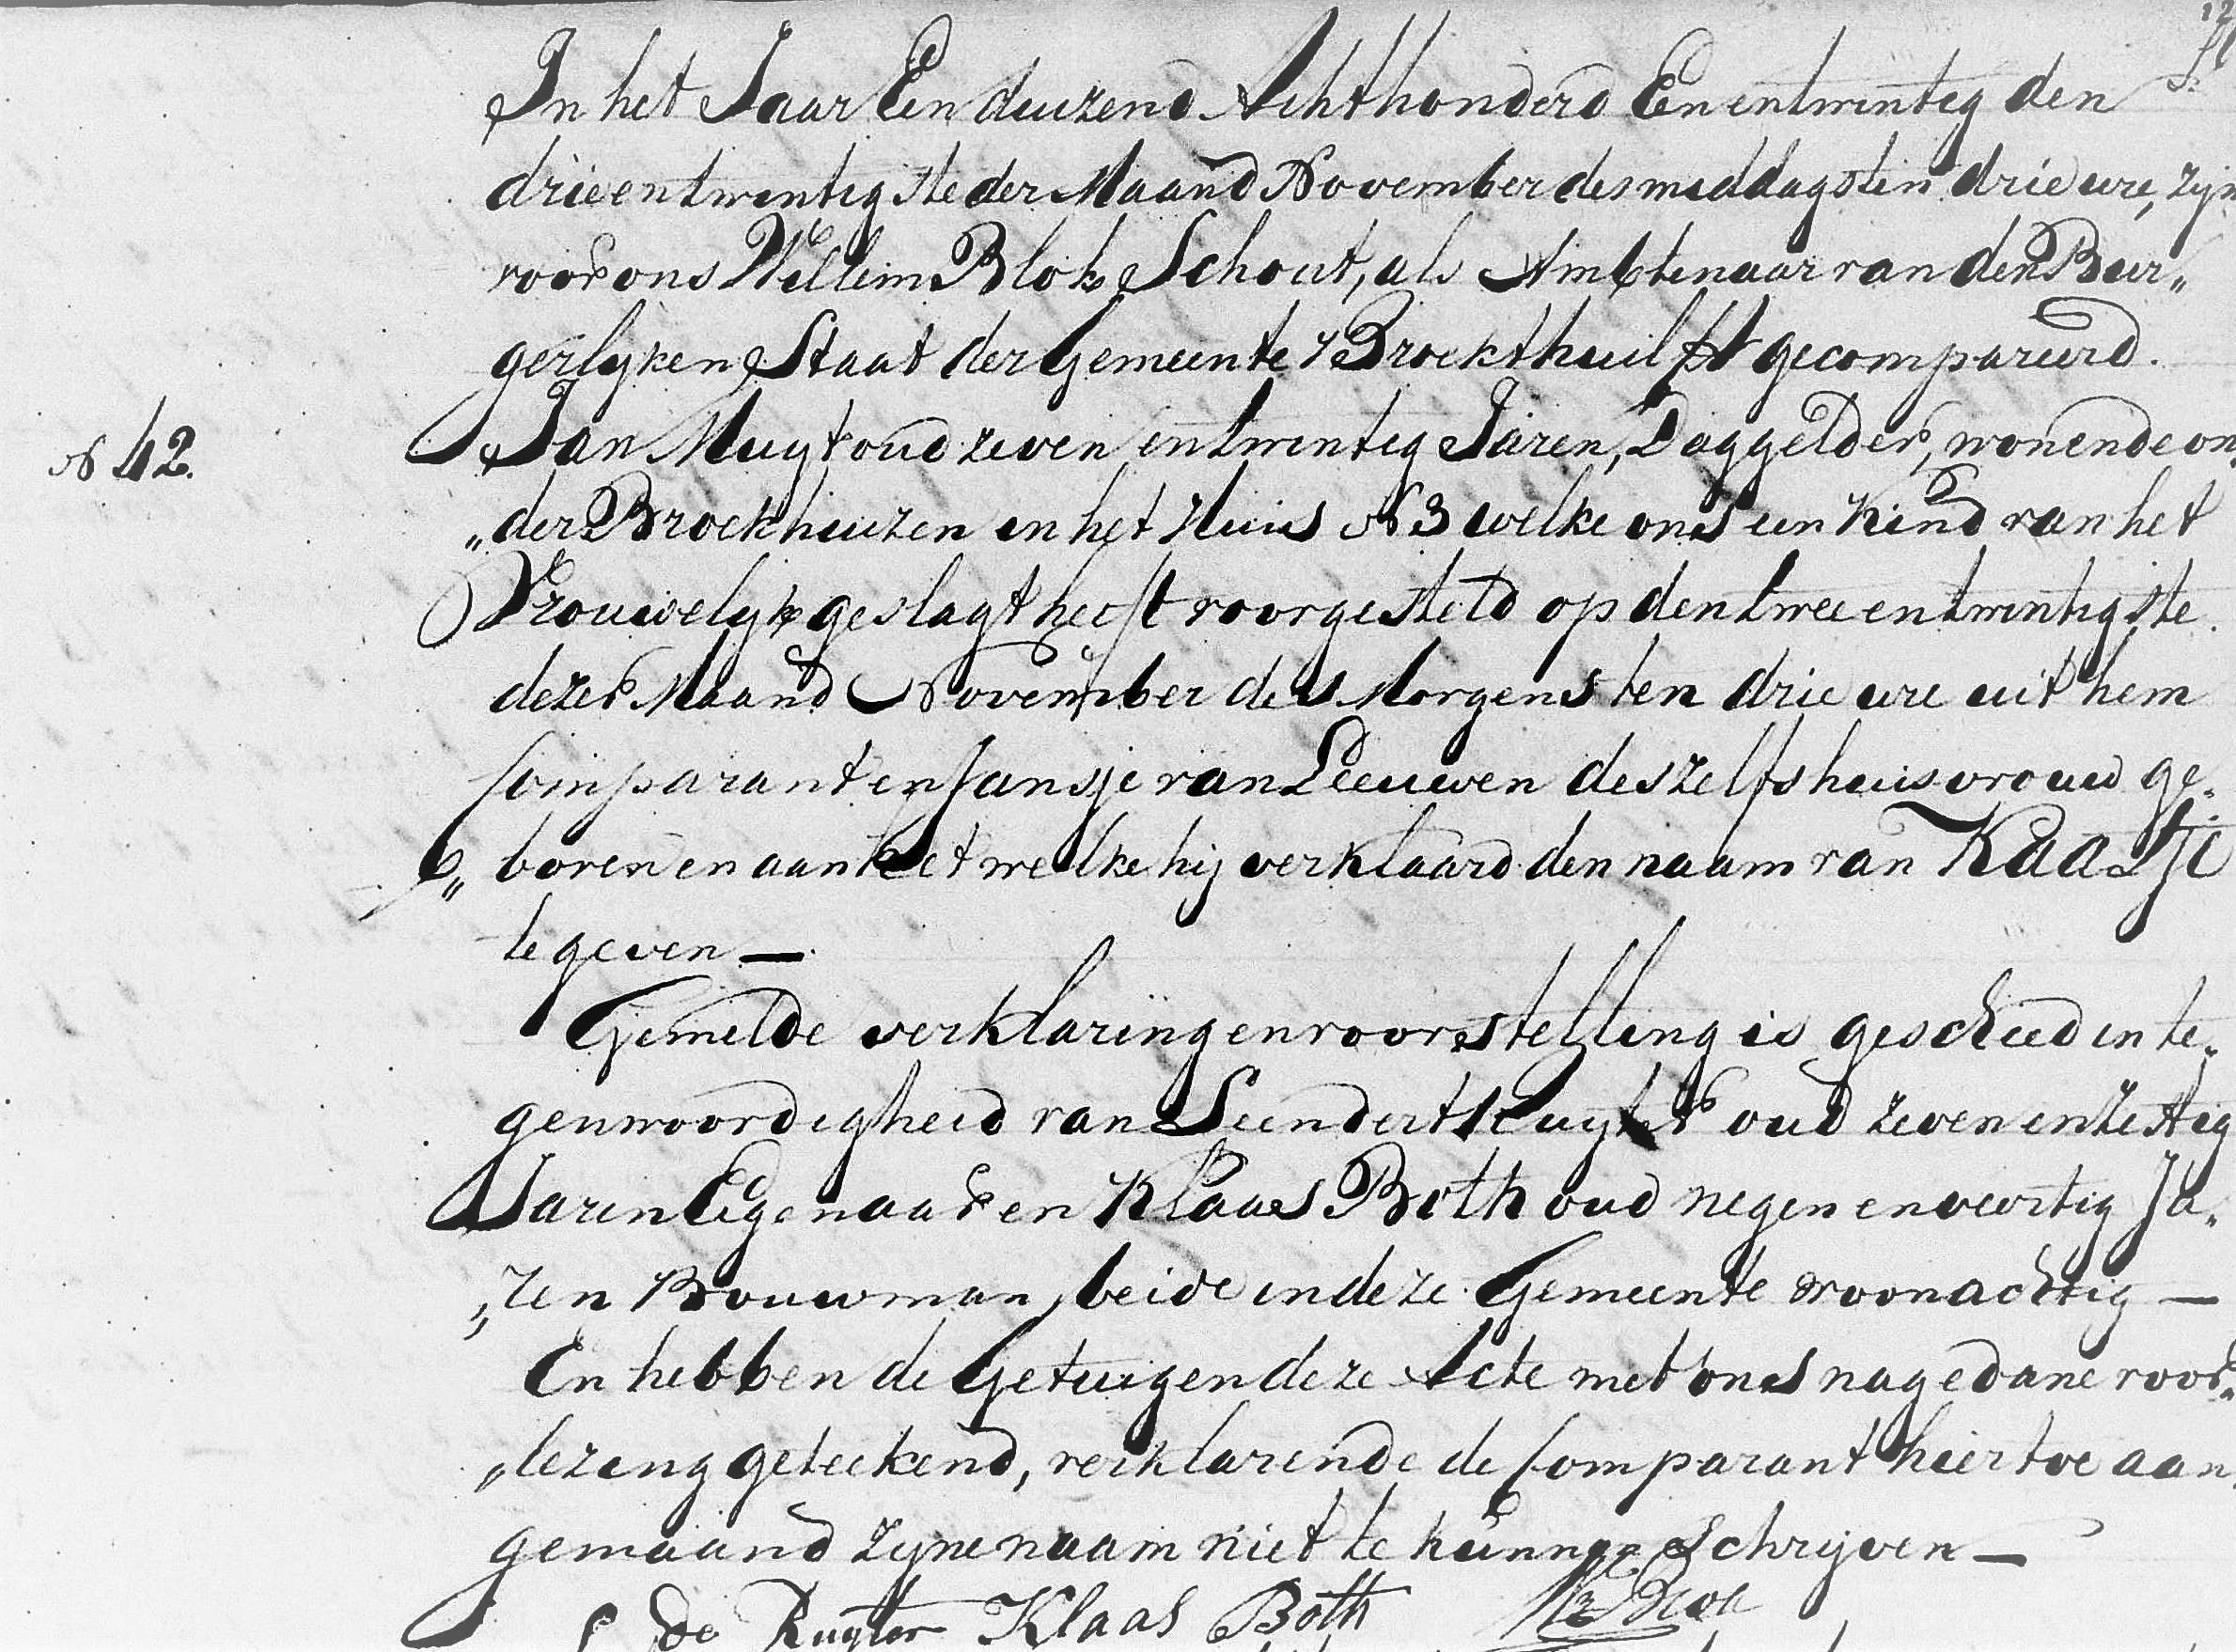 In het Jaar Een duizend Achthonderd Een entwintig den
drieentwintigste der Maand November des middags ten drie ure, zyn
voor ons Willem Blok Schout, als Ambtenaar van den Bur„
gerlyken Staat der Gemeente Broek Thuil &t gecompareerd.
N 42. Jan Muyt oud zeven entwintig Jaren, Daggelder, wonende on„
„der Broekhuizen in het Huis N 3 welke ons een Kind van het
Vrouwelyk geslagt heeft voorgesteld op den tweeentwintigste
dezer Maand November des Morgens ten drie ure uit hem
Comparant en Jansje van Leeuwen deszelfs huisvrouw ge„
„boren en aan het welke hij verklaard den naam van Kaatje
te geven —
Gemelde verklaring en voorstelling is geschied in te„
genwoordigheid van Leendert Ruyter oud zeven en zestig
Jaren Eigenaar en Klaas Both oud negen en veertig Ja„
„ren Bouwman, beide in deze Gemeente woonachtig —
En hebben de Getuigen deze Acte met ons na gedane voor„
„lezing geteekend, verklarende de Comparant hier toe aan„
gemaand zyne naam niet te kunnen Schrijven —
de Ruyter Klaas Both W Blok